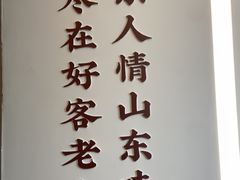 人情山东
尽在好客老